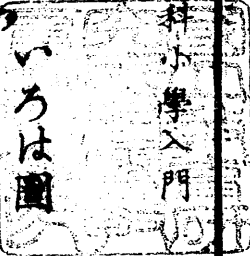 科小學入門
いろは圖